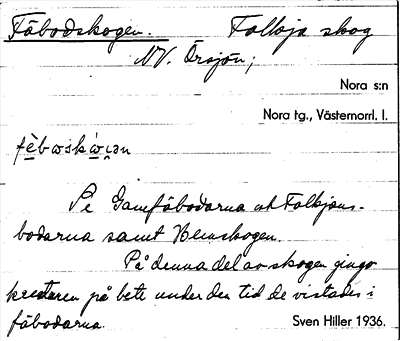 Fäbodskogen. Falloja skog
NV. Örsjön;
Nora s:n
Nora tg., Västernorrl. l.
Se Gamfäbodarna ok Falkjons-
bodarna samt Hemskogen.
På denna del av skogen gingo
kreaturen på bete under den tid de vistades i
fäbodarna.
Sven Hiller 1936.